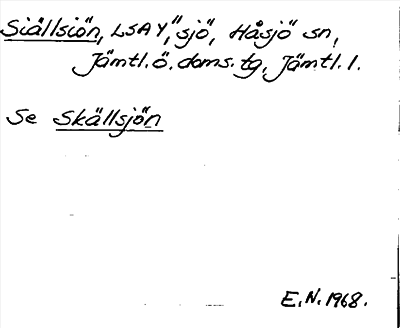 Siällsiön, LSAY, "sjö", Håsjö sn,
Jämtl. ö. doms. tg, Jämtl. l.
Se Skällsjön
E.N. 1968.